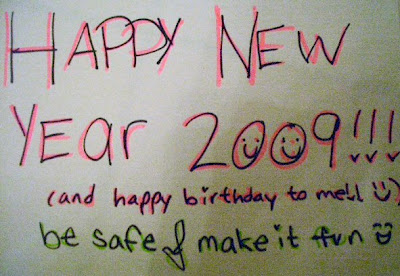 HAPPY NEW
YEAR 2009!!!
(and happy birthday to me!! :))
be safe & make it fun :)